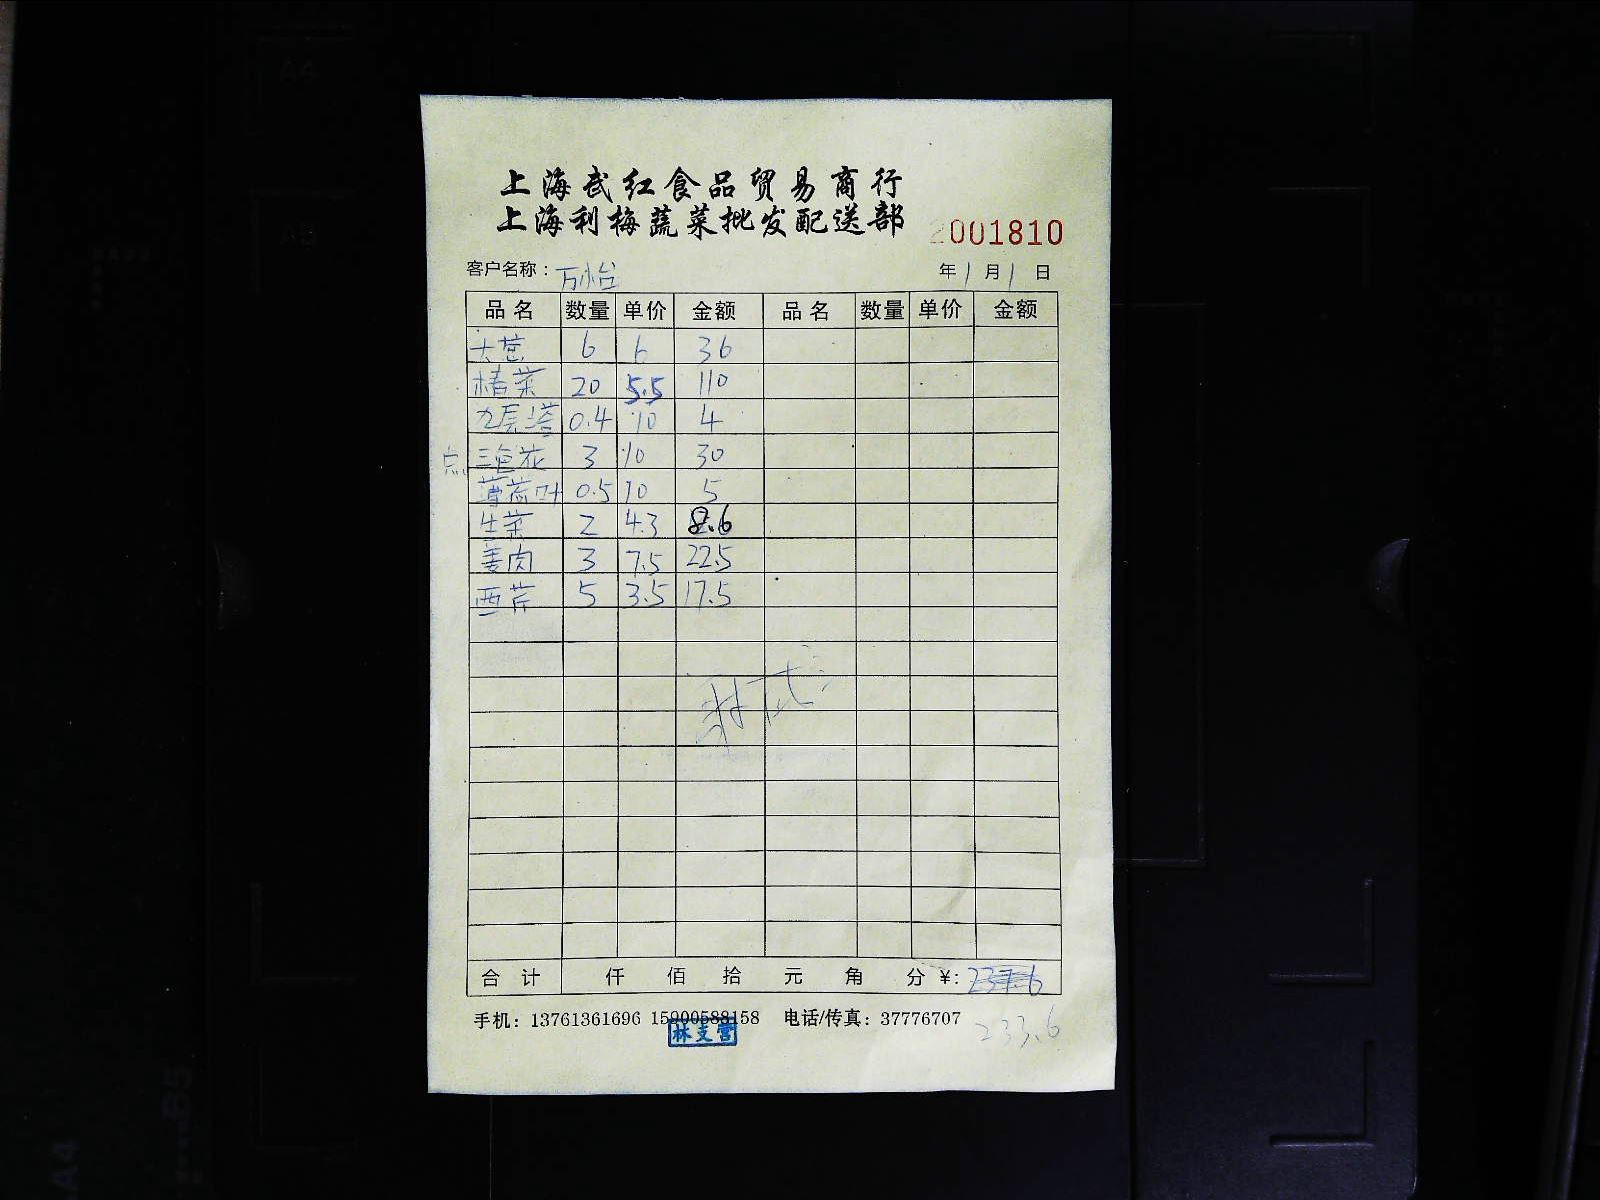 上海武红食品贸易商行
上海利梅蔬菜批发配送部 2001810
客户名称：万怡 年1月1日
品名 数量 单价 金额 品名 数量 单价 金额
大葱 6 6 36
20 5.5 110
九层塔 0.4 10 4
点 三色花 3 10 30
薄荷叶 0.5 10 5
生菜 2 4.3 8.6
姜肉 3 7.5 22.5
西芹 5 3.5 17.5
合计 仟 佰 拾 元 角 分 ¥:
手机：13761361696 15900588158 电话/传真：37776707
233.6
林支营
A4
A5
A4